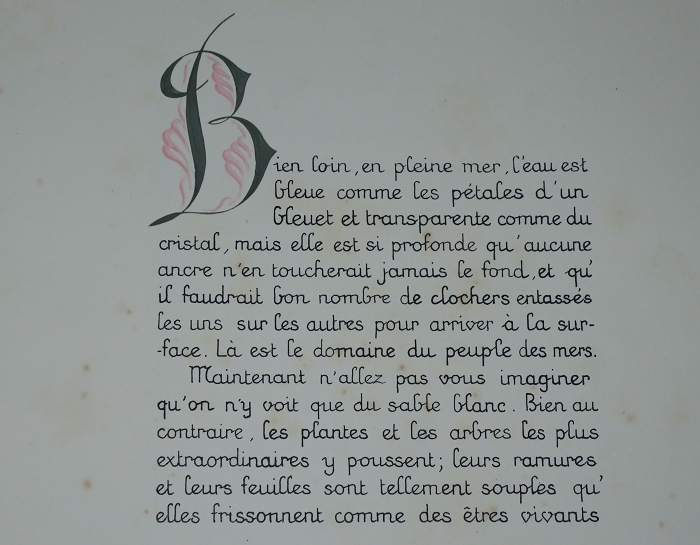 Bien loin, en pleine mer, l'eau est
bleue comme les pétales d'un
bleuet et transparente comme du
cristal, mais elle est si profonde qu'aucune
ancre n'en toucherait jamais le fond, et qu'
il faudrait bon nombre de clochers entassés
les uns sur les autres pour arriver à la sur-
-face. Là est le domaine du peuple des mers.
Maintenant n'allez pas vous imaginer
qu'on n'y voit que du sable blanc. Bien au
contraire, les plantes et les arbres les plus
extraordinaires y poussent; leurs ramures
et leurs feuilles sont tellement souples qu'
elles frissonnent comme des êtres vivants